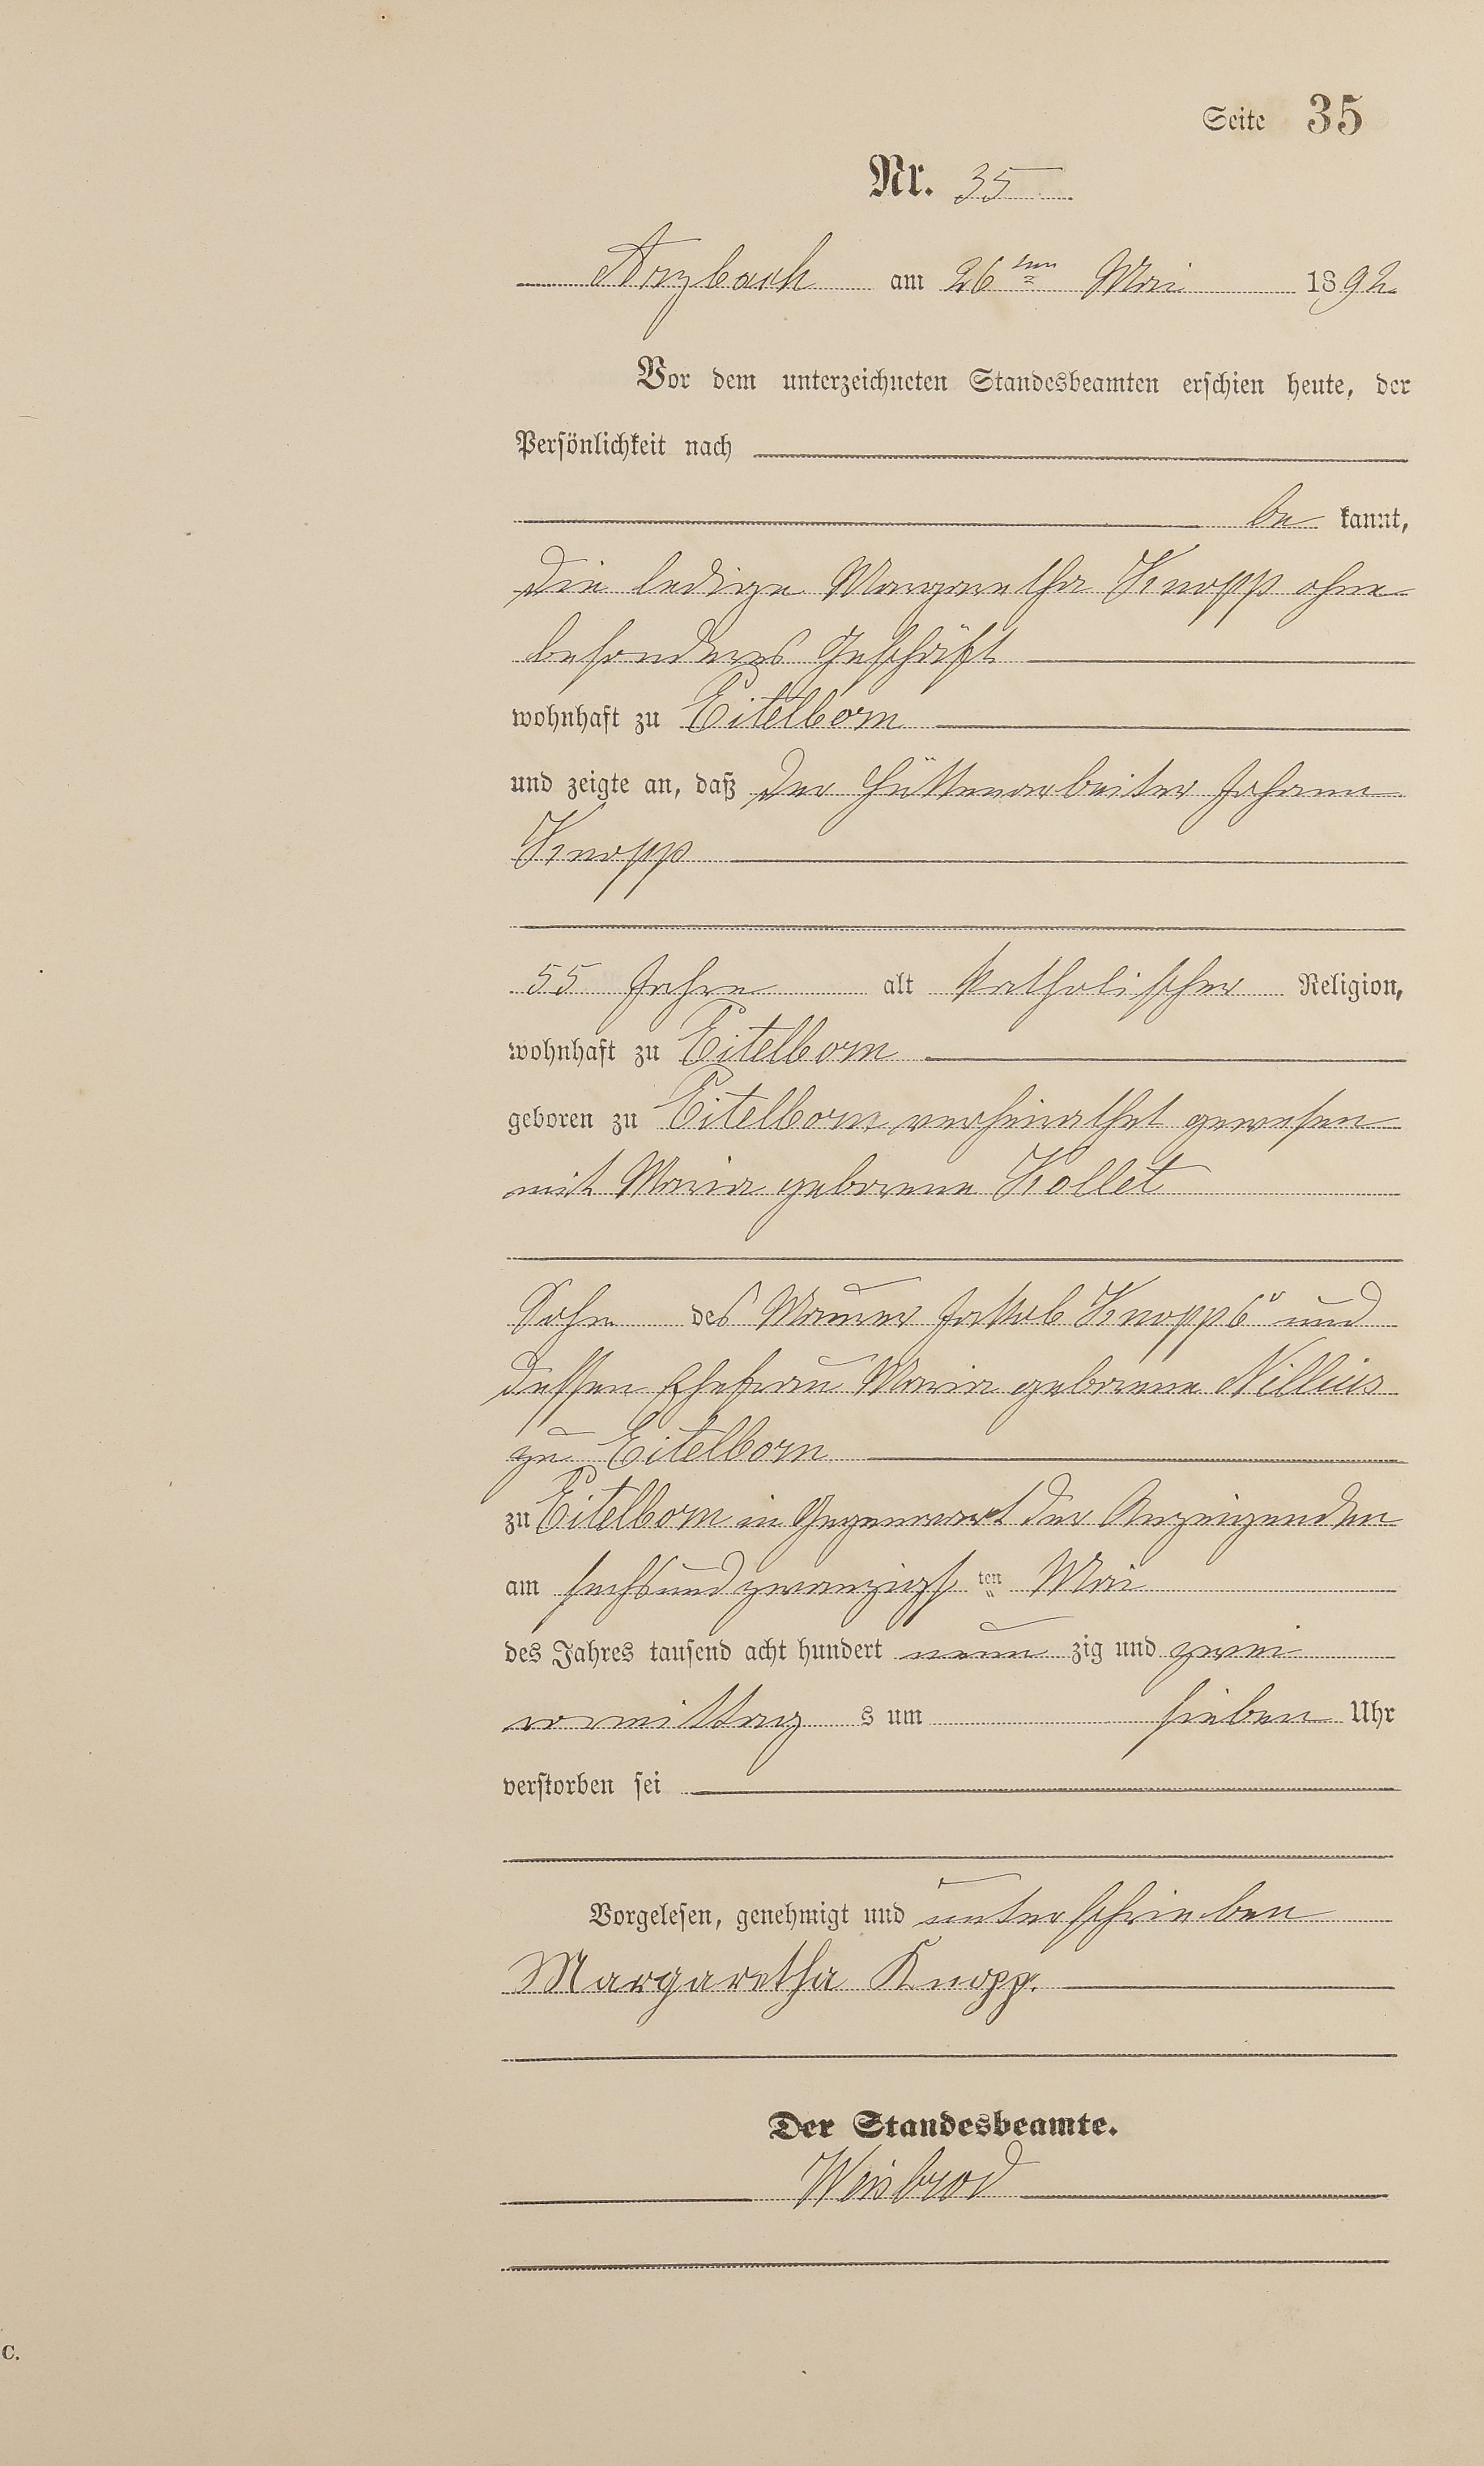 Seite 35
Nr. 35
Arzbach am 26ten Mai 1892
Vor dem unterzeichneten Standesbeamten erschien heute, der
Persönlichkeit nach
be kannt,
die ledige Margaretha Knopp ohne
besonderes Geschäft
wohnhaft zu Eitelborn
und zeigte an, daß der Hüttenarbeiter Johann
Knopp
55 Jahre alt katholischer Religion,
wohnhaft zu Eitelborn
geboren zu Eitelborn verheirathet gewesen
mit Maria geborene Kollet
Sohn des Maurer Jakob Knopp 6r und
dessen Ehefrau Maria geborene Nillius
zu Eitelborn
zu Eitelborn in Gegenwart der Anzeigenden
am sechsundzwanzigs ten Mai
des Jahres tausend acht hundert neun zig und zwei
vormittag s um sieben Uhr
verstorben sei
Vorgelesen, genehmigt und unterschrieben
Margaretha Knopp.
Der Standesbeamte.
Weisbrod
C.